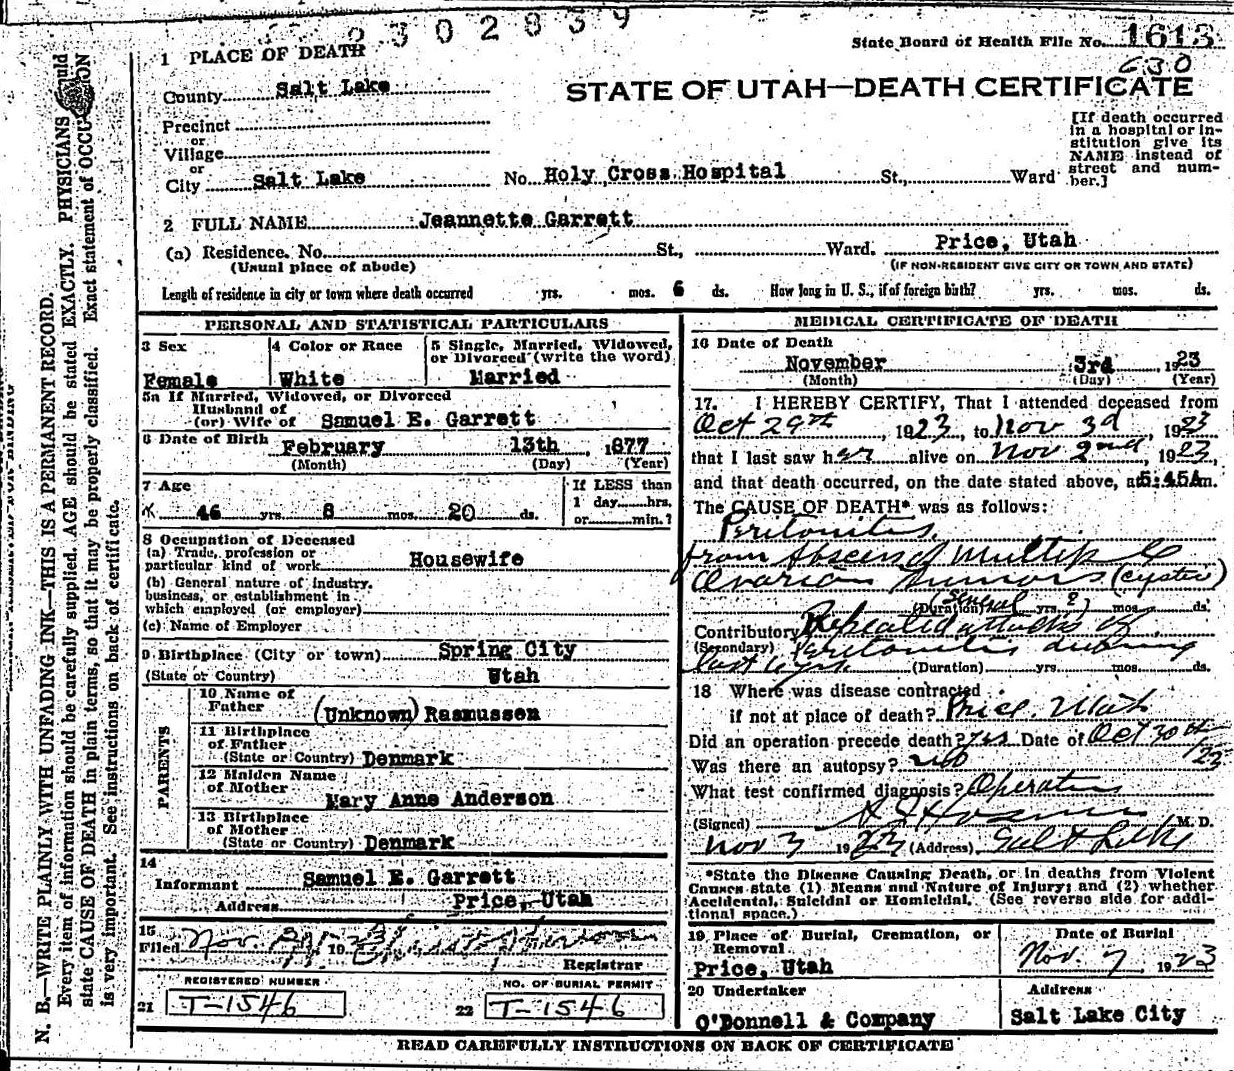 2302839
State Board of Health File No. 1613
630
1 PLACE OF DEATH
STATE OF UTAH—DEATH CERTIFICATE
County Salt Lake
Precinct
or
Village
or
City Salt Lake No. Holy Cross Hospital St., Ward
[If death occurred
in a hospital or in-
stitution give its
NAME instead of
street and num-
ber.]
2 FULL NAME Jeannette Garrett
(a) Residence. No. St., Ward. Price, Utah
(Usual place of abode) (IF NON-RESIDENT GIVE CITY OR TOWN AND STATE)
Length of residence in city or town where death occurred yrs. mos. 6 ds. How long in U. S., if of foreign birth? yrs. mos. ds.
PERSONAL AND STATISTICAL PARTICULARS
3 Sex
Female
4 Color or Race
White
5 Single, Married, Widowed,
or Divorced (write the word)
Married
5a If Married, Widowed, or Divorced
Husband of
(or) Wife of Samuel E. Garrett
6 Date of Birth
February 13th, 1877
(Month) (Day) (Year)
7 Age
46 yrs. 8 mos. 20 ds.
If LESS than
1 day hrs.
or min.?
8 Occupation of Deceased
(a) Trade, profession or
particular kind of work Housewife
(b) General nature of industry,
business, or establishment in
which employed (or employer)
(c) Name of Employer
9 Birthplace (City or town) Spring City
(State or Country) Utah
PARENTS
10 Name of
Father (Unknown) Rasmussen
11 Birthplace
of Father
(State or Country) Denmark
12 Maiden Name
of Mother
Mary Anne Anderson
13 Birthplace
of Mother
(State or Country) Denmark
14
Informant Samuel E. Garrett
Address Price, Utah
15
Filed Nov. 19
Registrar
REGISTERED NUMBER
21 T-1546
NO. OF BURIAL PERMIT
22 T-1546
MEDICAL CERTIFICATE OF DEATH
16 Date of Death
November 3rd, 1923
(Month) (Day) (Year)
17. I HEREBY CERTIFY, That I attended deceased from
Oct 29th, 1923, to Nov 3d, 1923
that I last saw her alive on Nov 2nd, 1923,
and that death occurred, on the date stated above, at 5:45A m.
The CAUSE OF DEATH* was as follows:
Peritonitis.
from Abscess of Multiple
Ovarian Tumors (cystic)
(Duration) Several yrs. ? mos. ds.
Contributory Repeated attacks of
(Secondary) Peritonitis during
last 6 yrs. (Duration) yrs. mos. ds.
18 Where was disease contracted
if not at place of death? Price, Utah
Did an operation precede death? Yes Date of Oct 30th
1923
Was there an autopsy? No
What test confirmed diagnosis? Operation
(Signed) M. D.
Nov 3 1923 (Address) Salt Lake
*State the Disease Causing Death, or in deaths from Violent
Causes state (1) Means and Nature of Injury; and (2) whether
Accidental, Suicidal or Homicidal. (See reverse side for addi-
tional space.)
19 Place of Burial, Cremation, or
Removal
Price, Utah
Date of Burial
Nov. 7, 1923
20 Undertaker
O'Donnell & Company
Address
Salt Lake City
READ CAREFULLY INSTRUCTIONS ON BACK OF CERTIFICATE
N. B.—WRITE PLAINLY WITH UNFADING INK—THIS IS A PERMANENT RECORD.
Every item of information should be carefully supplied. AGE should be stated EXACTLY. PHYSICIANS should
state CAUSE OF DEATH in plain terms, so that it may be properly classified. Exact statement of OCCUPATION
is very important. See instructions on back of certificate.